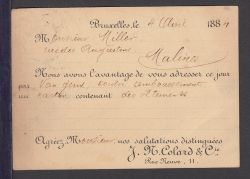 Bruxelles, le 4 Avril 1884
Monsieur Miller
rue des Augustins
Malines
Nous avons l'avantage de vous adresser ce jour
par
un carton contenant des vêtements
Agréez, Monsieur, nos salutations distinguées
J. N. Colard & Cie
Rue Neuve, 11